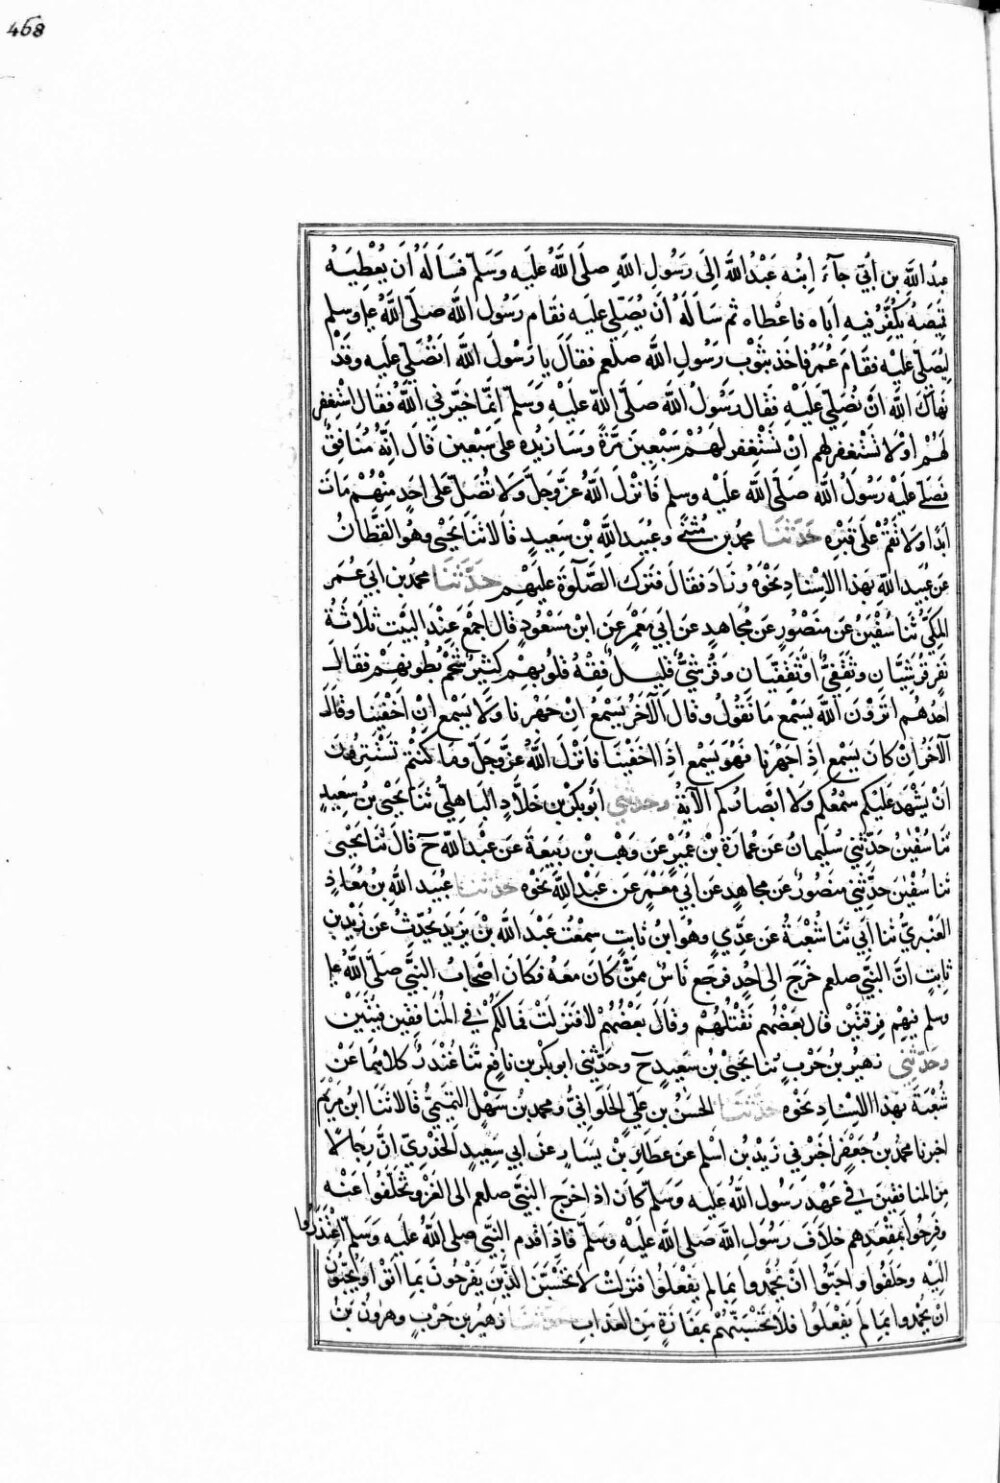 468
عبدُ اللَّه بن اُبَيّ جآءَ اِبنُه عَبْدُ اللَّهِ اِلَى رَسُولِ اللَّهِ صلَى اللَّهُ عَلَيهِ وَسَلَّم فَسَاَلَهُ اَن يُعْطِيَهُ
قميصَهُ يُكَفِّنُ فيهِ اَبَاه فاعطاه ثم سَاَلَهُ اَن يُصَلِّي عليَه فقَام رَسُول اللَّه صلَّى اللَّهُ عليه وسلم
لِيُصَلّي عَلَيْهِ فقامَ عُمَرُ فاخذ بثَوْب رَسُولِ اللَّه صلعم فقالَ يا رَسُولَ اللَّه اتُصَلّي عليه وقَدْ
نهاكَ اللَّه اَنْ تُصَلِّيَ عَلَيْهِ فقال رَسُولُ اللَّه صَلَّى اللَّه عَلَيْهِ وَسَلَّمَ اِنَّما خيَّرني اللَّهُ فقال اسْتَغفِر
لَهُمْ اَوْلَا تَسْتَغفِر لهم اِنْ تَسْتَغفِر لَهُمْ سَبْعِينَ مَرَّةً وَسَازيدُه على سَبْعين قَالَ اِنَّهُ مُنَافِقٌ
فَصَلَّى عَلَيْهِ رَسُولُ اللَّه صَلَّى اللَّه عَلَيْهِ وسلم فَانْزَلَ اللَّهُ عَزَّ وَجَلَّ وَلَا تُصَلّ عَلى اَحَدٍ مِنْهُمْ مَاتَ
اَبَدًا وَلَا تَقُمْ عَلَى قَبْرِه حَدَّثَنَا محمد بن مُثنَّى وعُبَيد اللَّهِ بْن سَعِيدٍ قالا ثنَا يَحْيَى وهو القطَّانُ
عن عُبَيد اللَّهِ بهذا الاِسْنادِ نَحْوَهُ وزَادَ فقَالَ فَتَرَكَ الصَّلٰوةَ عَلَيهِمْ حَدَّثَنَا محمد بن ابي عُمَر
المكيُّ ثنا سُفْيَنُ عَن مَنصُورٍ عَن مُجاهدٍ عَن ابي مَعْمَرٍ عَن ابْن مَسْعُودٍ قال اجتمع عِنْدَ البَيْتِ ثَلَاثَةُ
نَفَرٍ قُرَشيَّانِ وثَقَفيٌّ اَوْ ثَقَفِيَّان وَقُرَشِيٌّ قَلِيلٌ فِقْهُ قُلُوبِهِم كثيرٌ شَحْمُ بُطُونِهِمْ فقَالَ
احَدُهُم اَتَرَوْنَ اللَّهَ يَسْمعُ مَا نَقُولُ وقال الآخَرُ يَسْمَعُ اِنْ جَهَرنا وَلَا يَسْمع اِنْ اَخْفَيْنا وقَالَ
الآخَرُ اِنْ كَانَ يَسْمَع اِذَا جَهَرْنا فَهُوَ يَسْمع اِذَا اَخْفَيْنَا فَاَنْزَلَ اللَّهُ عَزَّ وجَلَّ وما كُنْتُمْ تَسْتَتِرُونَ
اَنْ يَشْهَدَ عَلَيْكم سَمْعُكم وَلَا ابْصَارُكم الآيَةُ وحدثني اَبُو بكر بْن خَلَّادٍ البَاهِليُّ ثنَا يَحْيَى بنُ سَعِيدٍ
ثنَا سُفْيَنُ حَدَّثَني سُلَيمانُ عَن عُمَارَةَ بْن عُمَيْرٍ عَن وَهْب بن رَبِيعَةَ عَن عَبد اللَّهِ ح قال ثنا يَحْيَى
ثنا سُفْيَن حَدَّثَنِي مَنصُورٌ عَن مُجاهِدٍ عَن ابي مَعْمَرٍ عَن عَبْدِ اللَّهِ نَحْوَهُ حَدَّثَنَا عُبَيد اللَّهِ بنُ مُعَاذٍ
العَنبَريُّ ثنا اَبي ثنا شُعْبَةُ عَن عَدِيٍّ وهُوَ ابْنُ ثابتٍ سمعْتُ عَبْدَ اللَّهِ بْنَ يَزيدَ يُحَدِّثُ عَن زَيْدِ بنِ
ثابتٍ اَنَّ النبيّ صلعم خرَجَ الَى اُحُدٍ فرَجَع نَاسٌ ممَّن كَانَ مَعَهُ فكَانَ اَصْحابُ النَّبيّ صَلَّى اللَّهُ عليه
وسلم فيهِم فِرقَتَيْن قال بَعْضُهُم نَقْتُلُهُمْ وقَالَ بَعْضُهُمْ لا فَنَزَلَتْ فمالَكُمْ في المُنَافِقِين فِئَتَيْنِ
وحَدَّثَنِي زهَيرُ بن حَرْبٍ ثنا يَحْيى بْنُ سَعِيدٍ ح وحدَّثني ابو بكر بن نافِعٍ ثنَا غُنْدَرٌ كلاهُما عَنْ
شُعْبَةَ بهٰذا الاِسْنادِ نَحْوَهُ حَدَّثَنَا الحَسَنُ بن عَلِيٍّ الحُلوَانيُّ ومحمد بن سَهْلٍ التَميميُّ قَالَا ثنَا ابن مَرْيَم
اخبرنا محمد بنُ جَعْفَرٍ اَخْبَرَني زَيْدُ بن اَسْلَم عَن عَطَاءِ بْنِ يَسَارٍ عن ابي سَعِيدٍ الخُدْرِيّ اَنَّ رِجَالًا
مِنَ المُنَافِقينَ في عَهْدِ رَسُول اللَّهُ عَليهِ وَسَلَّمَ كَان اذا خَرَجَ النبيّ صلعم الَى الغَزْوِ تَخَلَّفُوا عَنْهُ
وفَرِحُوا بمَقْعَدِهم خِلَافَ رَسُولِ اللَّه صَلَّى اللَّه عَلَيْهِ وَسَلَّمَ فَاِذَا قدم النَّبيّ صلى اللَّهُ عَلَيهِ وَسَلَّم اعْتَذَرُوا
اليْهِ وحَلَفُوا واَحَبّوا اَنْ يُحْمَدُوا بما لم يَفْعَلُوا فَنَزَلَتْ لا تَحْسَبَنَّ الَّذينَ يَفْرَحُونَ بمَا اَتَوْا وَيُحِبُّونَ
اَن يُحْمَدوا بمَا لَمْ يَفْعَلُوا فَلَا تَحْسَبَنَّهُمْ بمَفَازَةٍ مِنَ العَذَابِ حَدَّثَنَا زهَيرُ بن حَرْبٍ وهٰرُونُ بْنُ